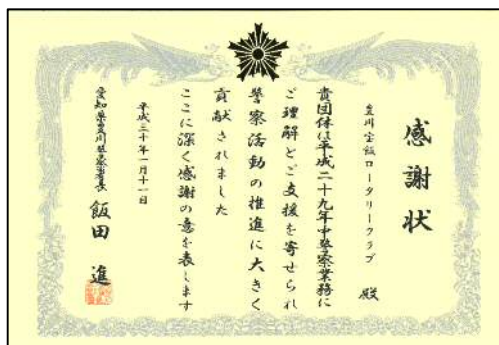 感謝状
豊川宝飯ロータリークラブ 殿
貴団体は平成二十九年中警察業務に
ご理解とご支援を寄せられ
警察活動の推進に大きく
貢献されました
ここに深く感謝の意を表します
平成三十年一月十一日
愛知県豊川警察署長 飯田 進